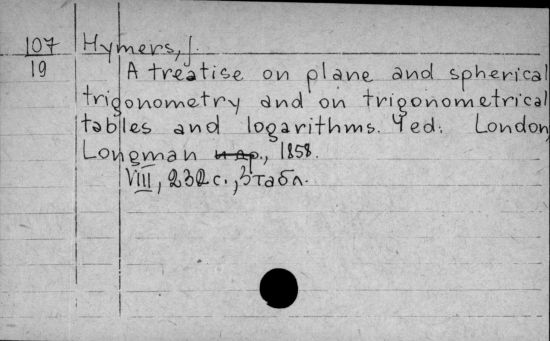 107 Hymers, J.
19 A treatise on plane and spherical
trigonometry and on trigonometrical
tables and logarithms. 4 ed. London,
Longman и др., 1858.
VIII, 232 с., 3 табл.